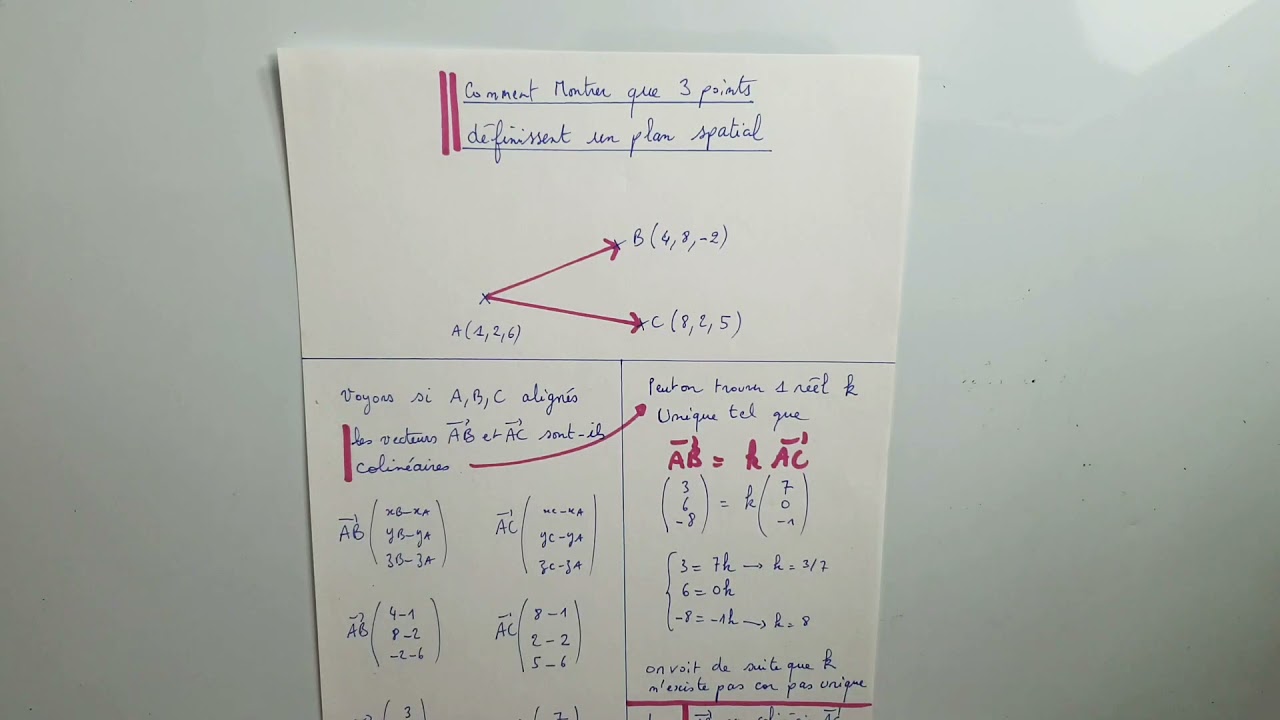 Comment Montrer que 3 points
définissent un plan spatial
B(4,8,-2)
C(8,2,5)
A(1,2,6)
Voyons si A,B,C alignés
les vecteurs AB et AC sont-ils
colinéaires
AB ( xB-xA
yB-yA
zB-zA )
AC ( xC-xA
yC-yA
zC-zA )
AB ( 4-1
8-2
-2-6 )
AC ( 8-1
2-2
5-6 )
3
7
Peut on trouver 1 réel k
Unique tel que
AB = k AC
( 3
6
-8 ) = k ( 7
0
-1 )
3 = 7k → k = 3/7
6 = 0k
-8 = -1k → k = 8
on voit de suite que k
n'existe pas car pas unique